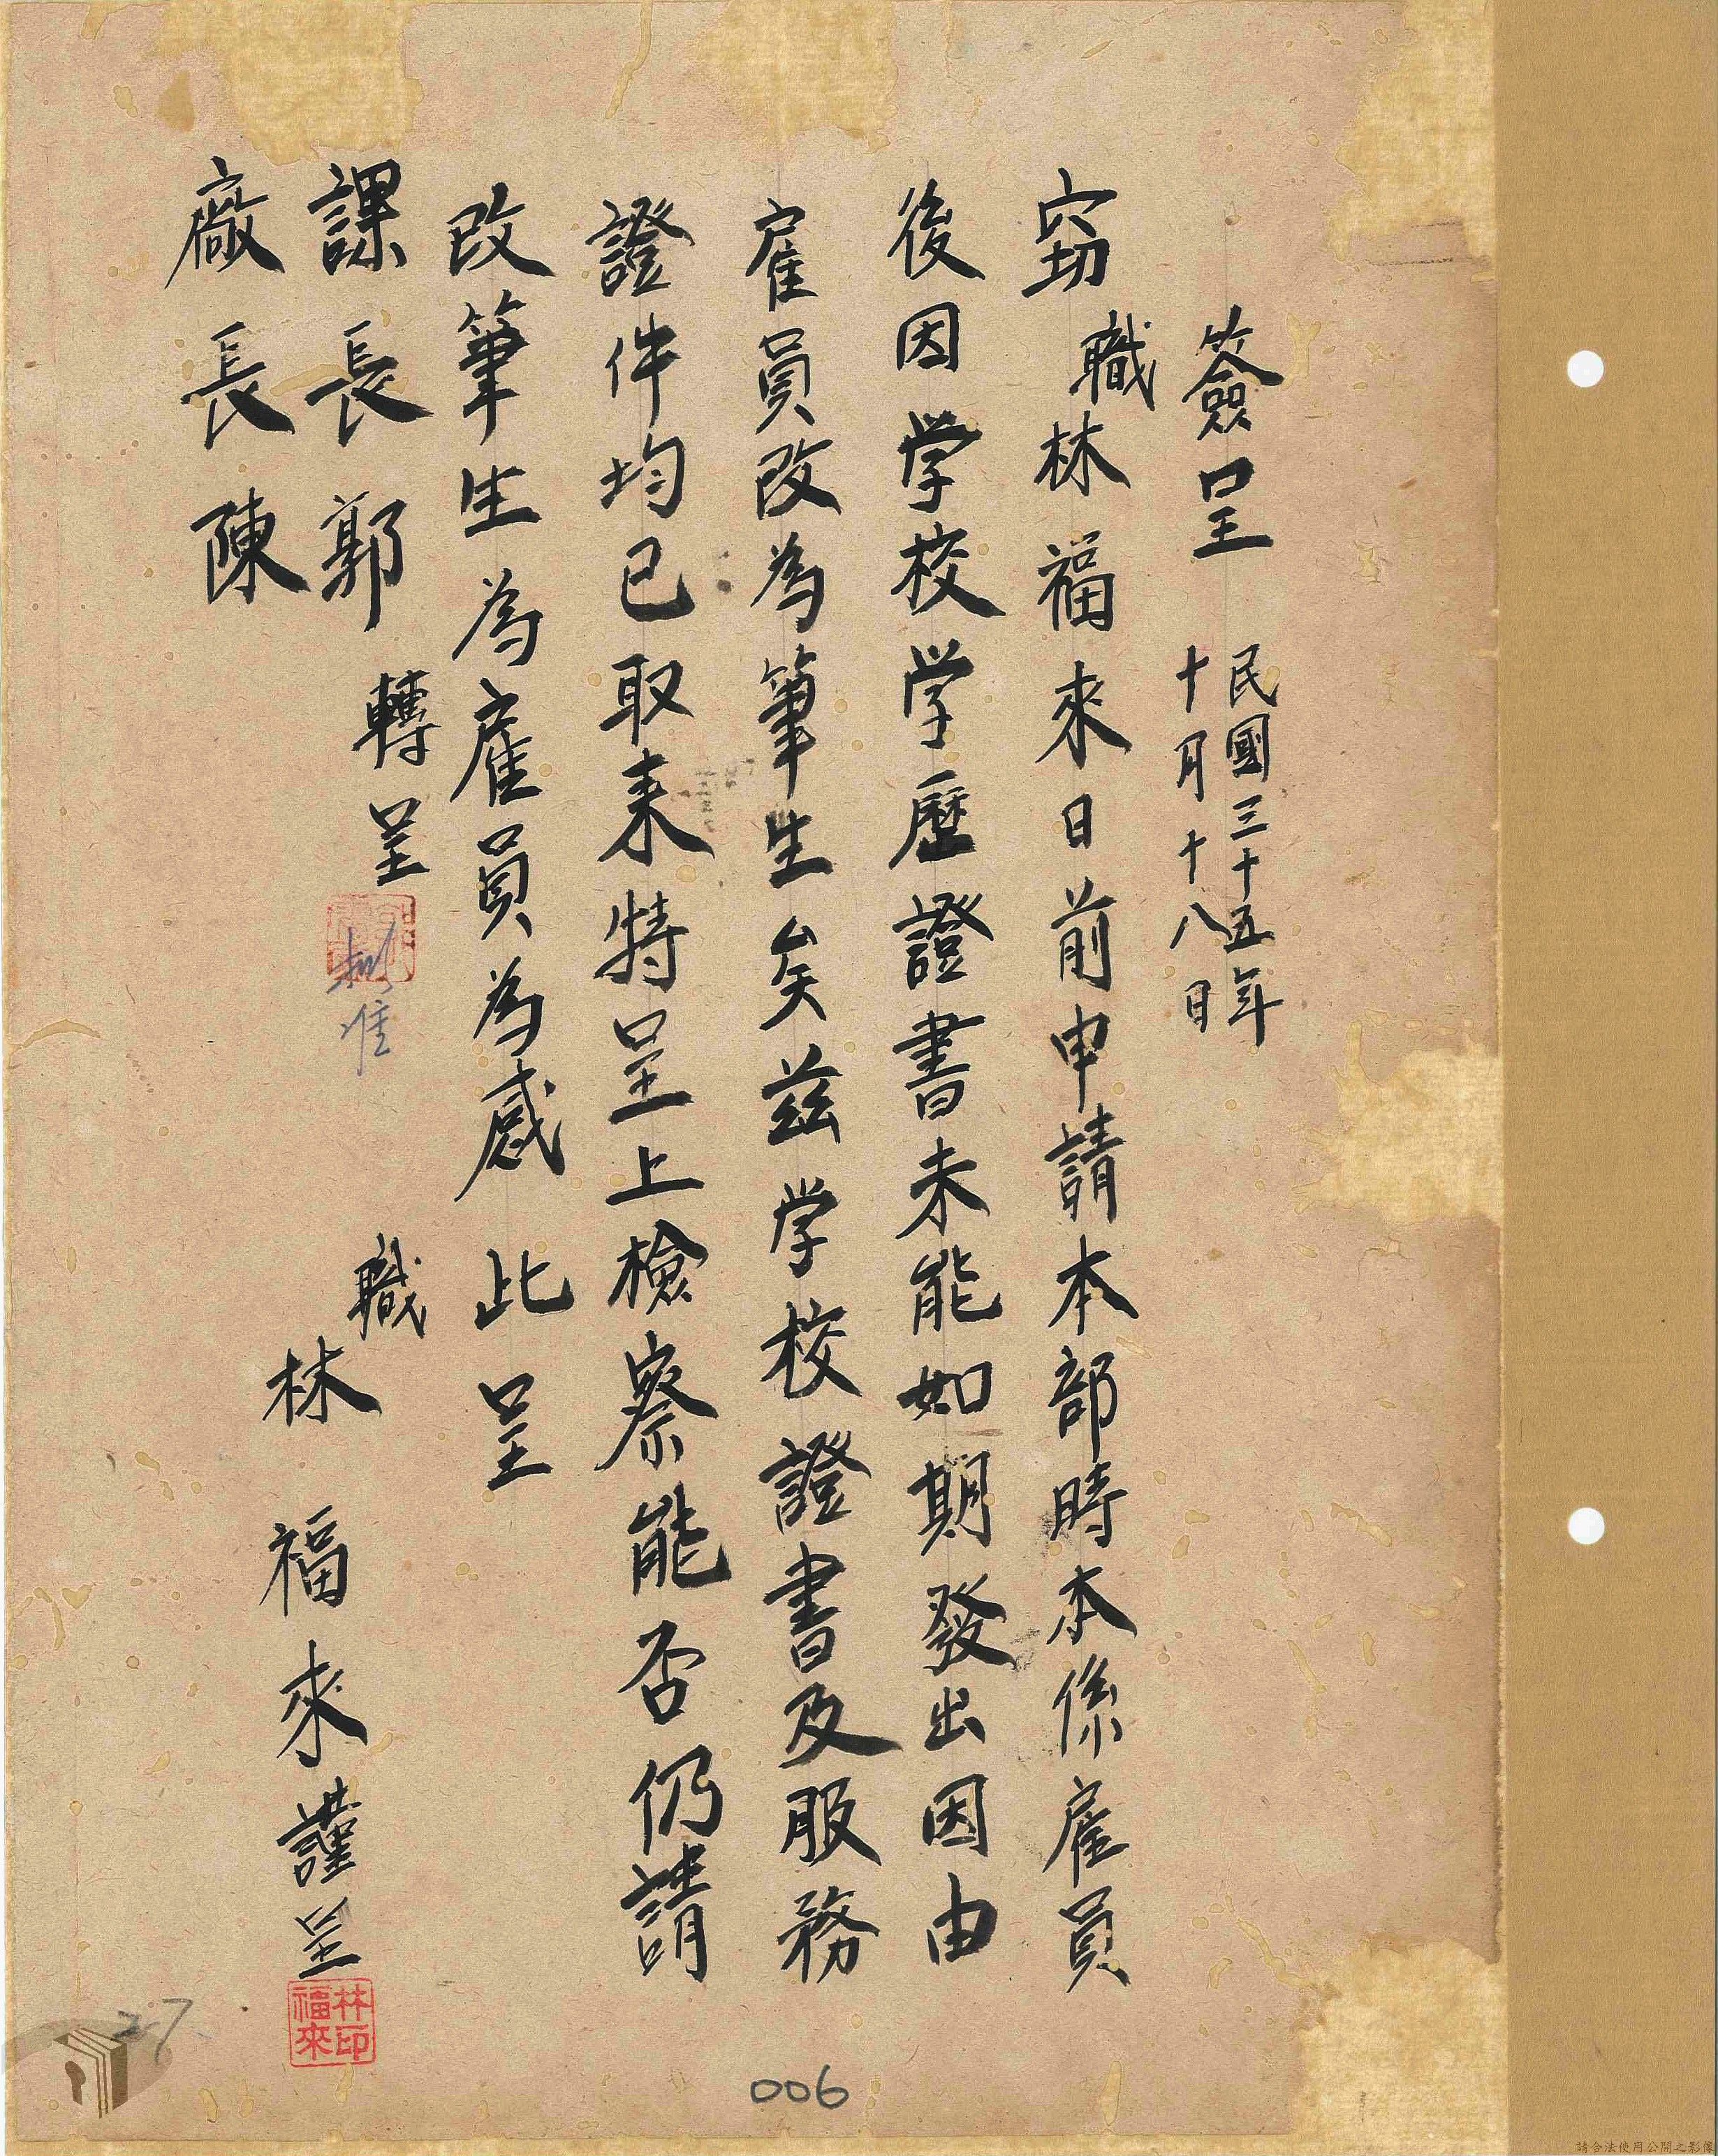 簽呈
民國三十五年
十月十八日
竊職林福來日前申請本部時本係雇員
後因学校学歷證書未能如期發出因由
雇員改為筆生矣茲学校證書及服務
證件均已取来特呈上檢察能否仍請
改筆生為雇員為感 此呈
課長郭 轉呈
廠長陳
准
職林福來謹呈
林印福來
27
006
請合法使用公開之影像